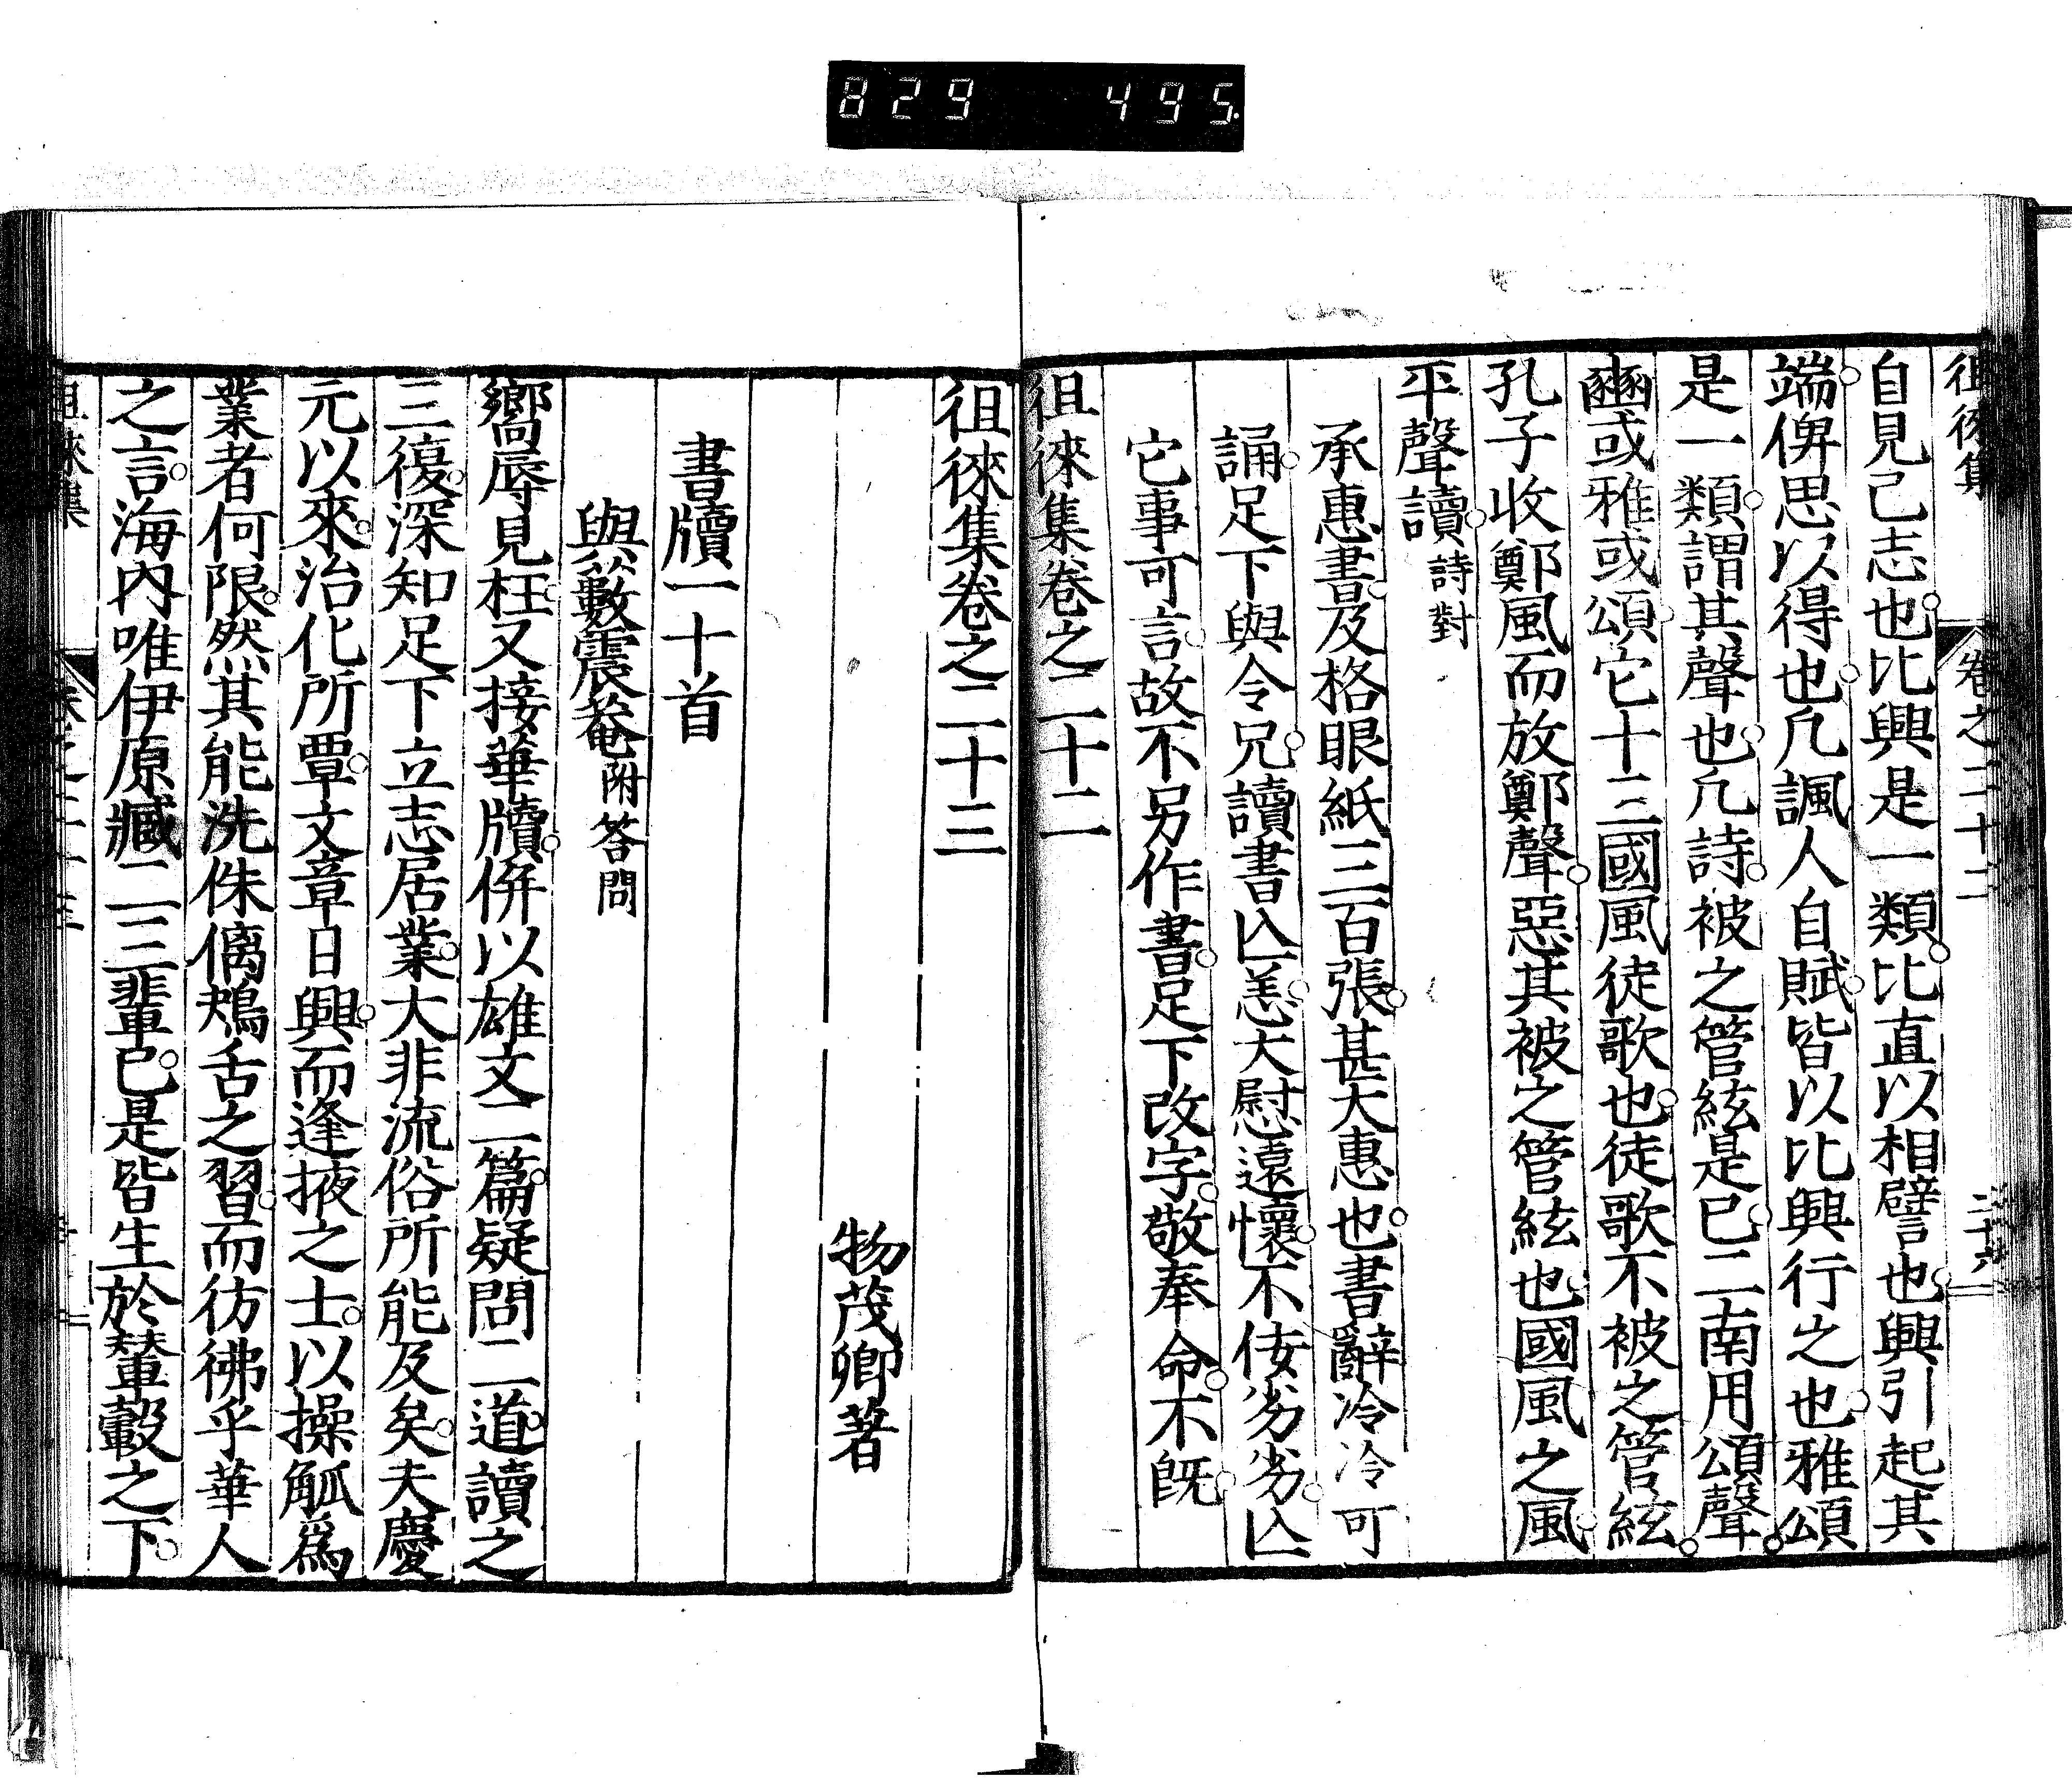 829 495
徂徠集 卷之二十二 二十六
自見己志也比興是一類比直以相譬也興引起其
端俾思以得也凡諷人自賦皆以比興行之也雅頌
是一類謂其聲也凡詩被之管絃是已二南用頌聲
豳或雅或頌它十三國風徒歌也徒歌不被之管絃
孔子收鄭風而放鄭聲惡其被之管絃也國風之風
平聲讀詩對
承惠書及格眼紙三百張甚大惠也書辭冷冷可
誦足下與令兄讀書亾恙大慰遠懷不佞劣劣亾
它事可言故不另作書足下改字敬奉命不旣
徂徠集卷之二十二
徂徠集卷之二十三
物茂卿著
書牘一十首
與藪震菴附答問
嚮辱見枉又接華牘倂以雄文二篇疑問二道讀之
三復深知足下立志居業大非流俗所能及矣夫慶
元以來治化所覃文章日興而逢掖之士以操觚爲
業者何限然其能洗侏𠌯鴂舌之習而彷彿乎華人
之言海內唯伊原臧二三輩已是皆生於輦轂之下
徂徠集 卷之二十三